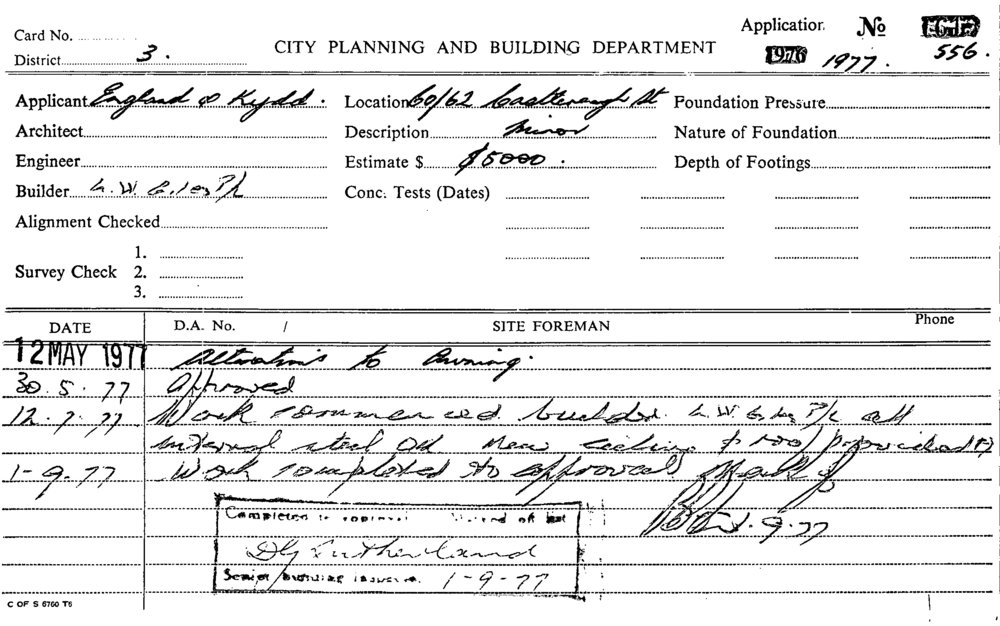 Card No.
Application No
District 3.
CITY PLANNING AND BUILDING DEPARTMENT
1976 1977. 556.
Applicant England & Kydd.
Location 60/62 Castlereagh St
Foundation Pressure
Architect
Description Minor
Nature of Foundation
Engineer
Estimate $ $5000.
Depth of Footings
Builder W. P/L
Conc. Tests (Dates)
Alignment Checked
1.
Survey Check 2.
3.
DATE D.A. No. / SITE FOREMAN Phone
12 MAY 1977 Alterations to Awning.
30.5.77 Approved
12.7.77 Work commenced. builder. W. P/L all
internal steel OK new ceiling & roof provided
1-9-77 Work completed to approval
1.9.77
Completed to approval off list
Sutherland
Senior Building 1-9-77
C OF S 6760 T6